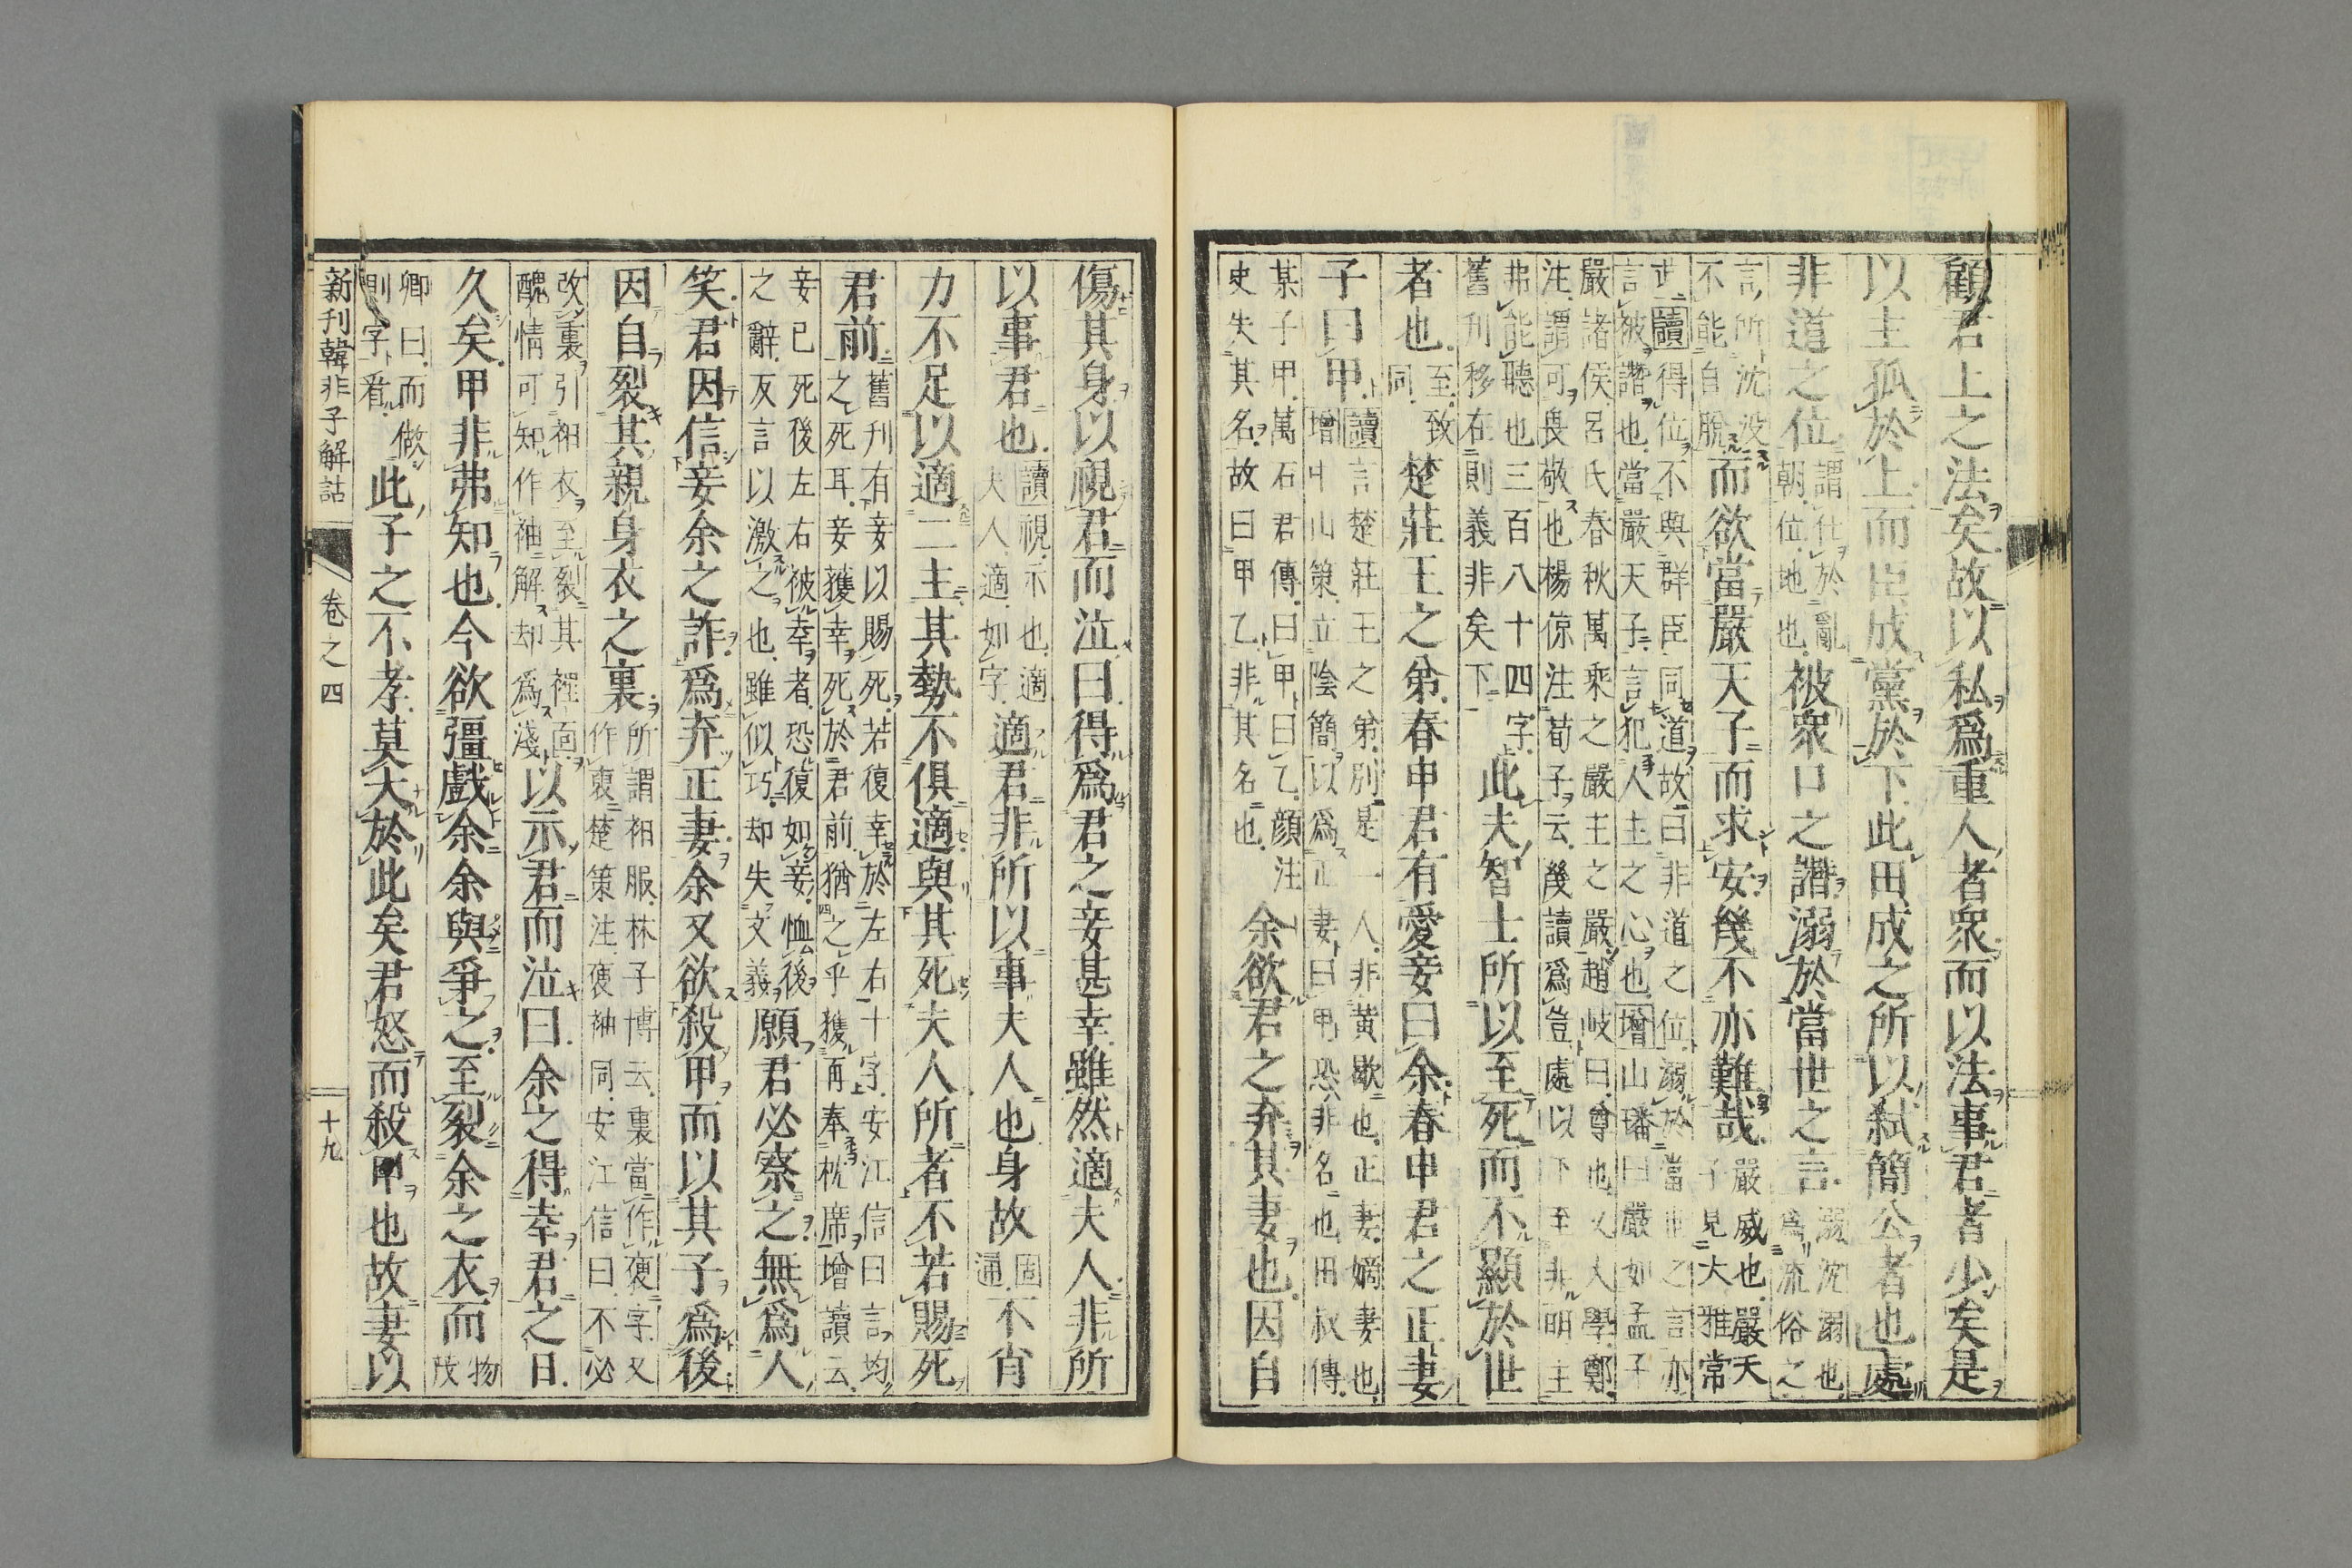 顧君上之法矣故以私爲重人者衆而以法事君者少矣是
以主孤於上而臣成黨於下此田成之所以弑簡公者也處
非道之位謂仕於亂朝位地也被衆口之譖溺於當世之言溺沈溺也爲流俗之
言所沈没不能自脫而欲當嚴天子而求安幾不亦難哉嚴威也嚴天子見大雅常
武讀得位不與群臣同道故曰非道之位溺於當世之言亦言被譖也當嚴天子言犯人主之心也增山璠曰嚴如孟子
嚴諸侯呂氏春秋萬乘之嚴主之嚴趙岐曰尊也又人學鄭注謂可畏敬也楊倞注荀子云幾讀爲豈處以下至非明主
弗能聽也三百八十四字舊刊移在則義非矣下此夫智士所以至死而不顯於世
者也至致同楚莊王之弟春申君有愛妾曰余春申君之正妻
子曰甲讀言楚莊王之弟別是一人非黄歇也正妻嫡妻也增中山策立陰簡以爲正妻曰甲恐非名也田叔傳
某子甲萬石君傳曰甲曰乙顔注史失其名故曰甲乙非其名也余欲君之弃其妻也因自
傷其身以視君而泣曰得爲君之妾甚幸雖然適夫人非所
以事君也讀視示也適夫人適如字適君非所以事夫人也身故固通不肖
力不足以適二主其勢不俱適與其死夫人所者不若賜死
君前舊刊有妾以賜死若復幸於左右十字安江信曰言均之死耳妾獲幸死於君前猶之乎獲再奉枕席增讀云
妾已死後左右彼幸者恐復如妾恤後之辭反言以激之也雖似巧却失文義願君必察之無爲人
笑君因信妾余之詐爲弃正妻余又欲殺甲而以其子爲後
因自裂其親身衣之裏所謂衵服林子博云裏當作褏字又作裵楚策注褏袖同安江信曰不必
改裏引衵衣至裂其裡面醜情可知作袖解却爲淺以示君而泣曰余之得幸君之日
久矣甲非弗知也今欲彊戲余余與爭之至裂余之衣而物茂
卿曰而做則字看此子之不孝莫大於此矣君怒而殺甲也故妻以
新刊韓非子解詁 卷之四 十九